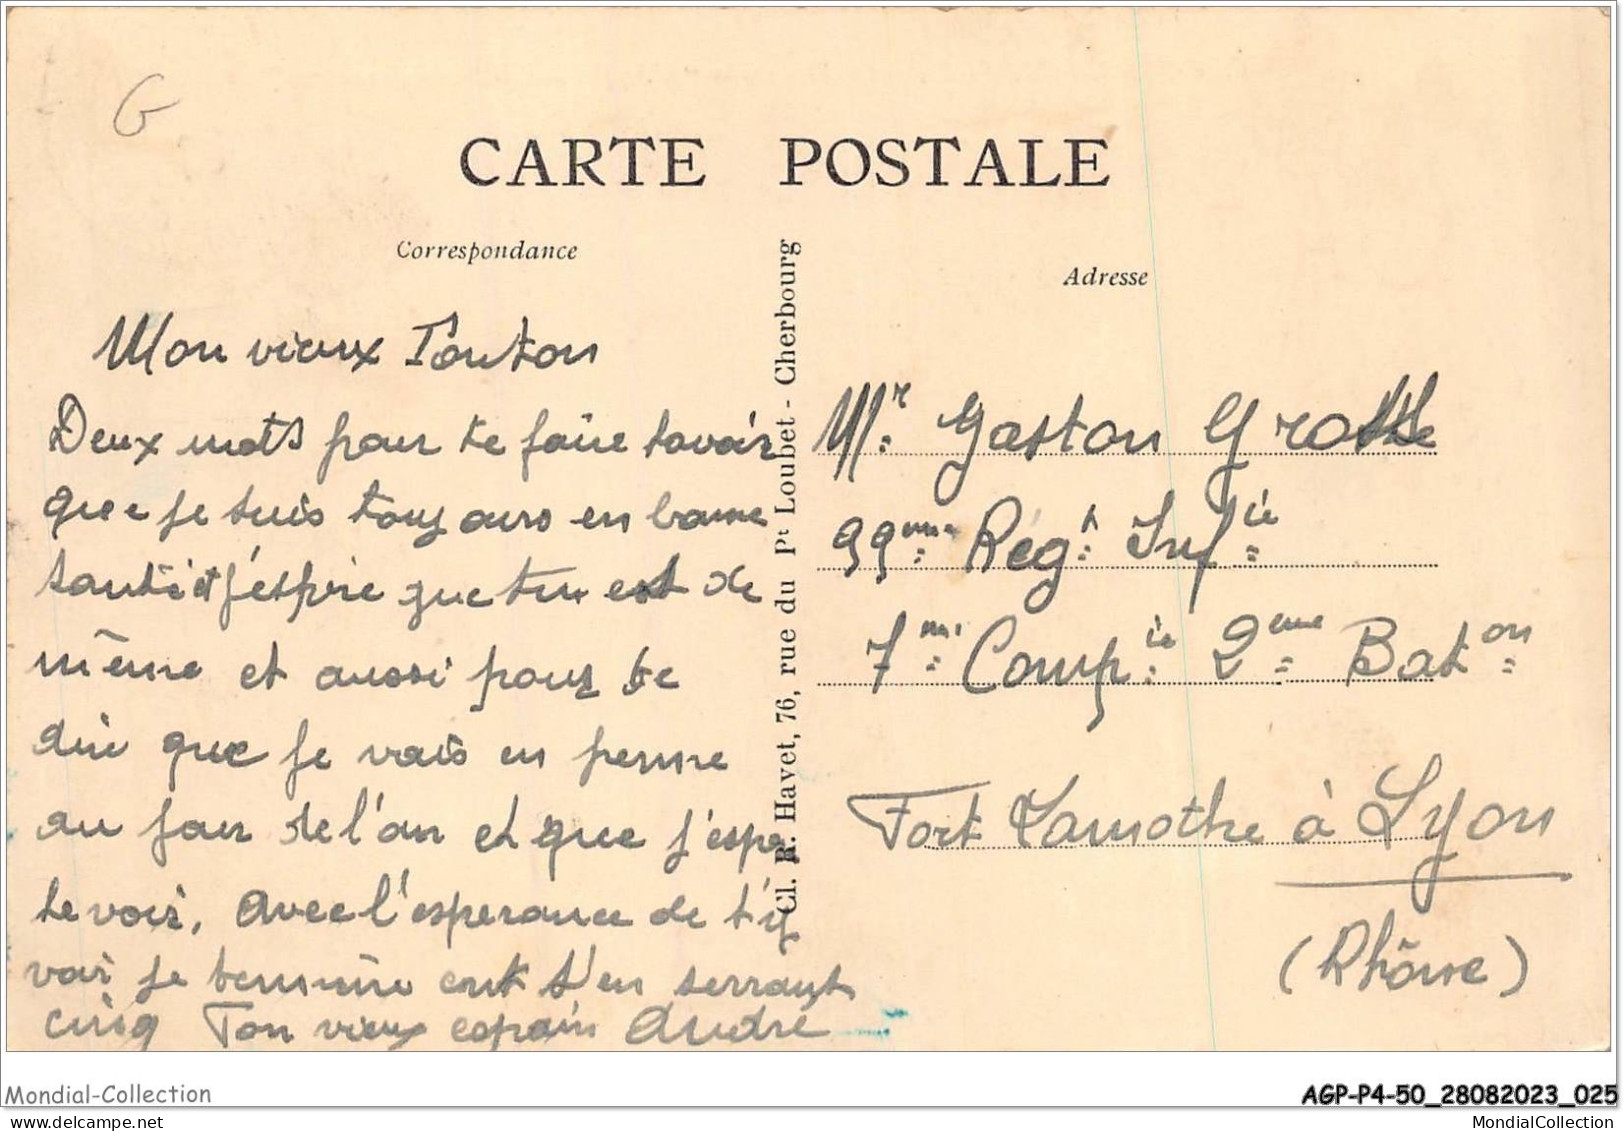 G
CARTE POSTALE
Correspondance
Adresse
Mon vieux Tonton
Deux mots pour te faire savoir
que je suis toujours en bonne
santé et j'espére que tu est de
même et aussi pour te
dire que je vais en perme
au jour de l'an et que j'espe
te voir, avec l'esperance de t'y
voir je termine ent t'en serrant
cinq Ton vieux copain André
Cl. R. Havet, 76, rue du Pt Loubet - Cherbourg
Mr. Gaston
99eme Régt Infie
7me Compie 2eme Baton
Fort Lamothe à Lyon
(Rhône)
Mondial-Collection
AGP-P4-50_28082023_025
www.delcampe.net
MondialCollection